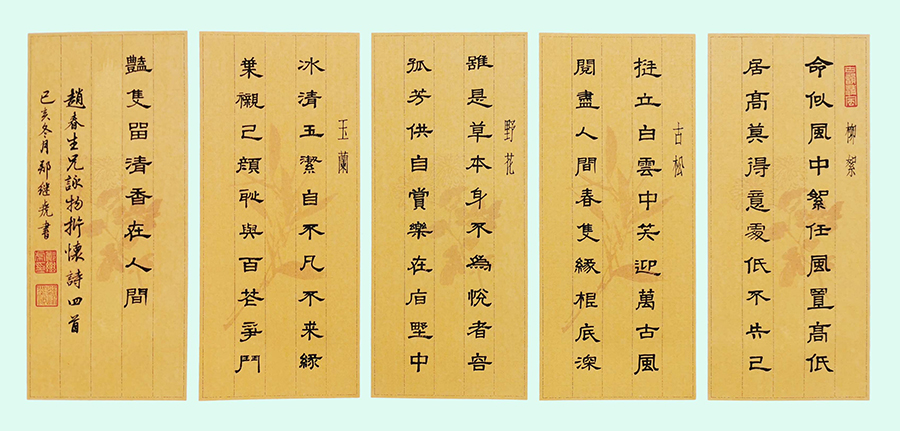 柳絮
命似風中絮任風置髙低
居髙莫得意處低不失己
古松
挺立白雲中笑迎萬古風
閱盡人間春隻緣根底深
野花
雖是草本身不為悅者容
孤芳供自賞樂在野中
玉蘭
冰清玉潔自不凡不来緣
葉襯己顏恥與百花爭鬥
豔隻留清香在人間
趙春生兄詠物抒懷詩四首
己亥冬月鄭继尭書